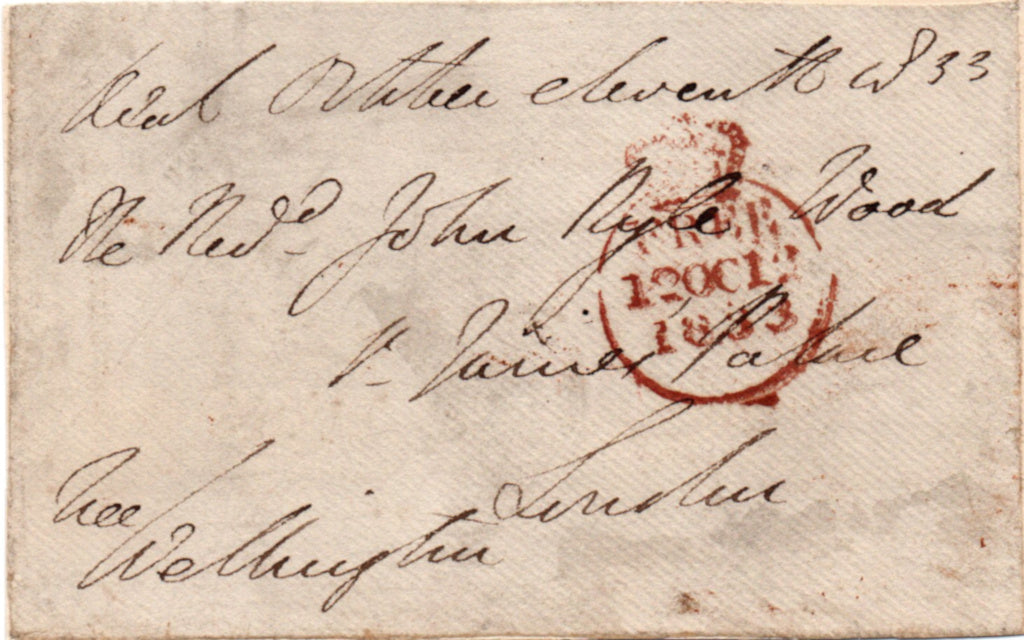 Deal October eleventh 1833
The Revd. John Ryle Wood
St. James' Palace
London
Free
Wellington
FREE
12OC12
1833